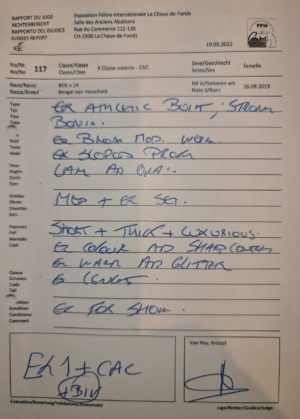 RAPPORT DU JUGE
RICHTERBERICHT
RAPPORTO DEL GIUDICE
JUDGES REPORT
Exposition Féline Internationale La Chaux-de-Fonds
Salle des Anciens Abattoirs
Rue du Commerce 122-126
CH-2300 La Chaux-de-Fonds
FFH
19.03.2022
No/Nr. 117 Classe/Klasse 9 Classe ouverte - CAC Sexe/Geschlecht femelle
No/No. Classe/Class Sesso/Sex
Race/Rasse BEN n 24 Né le/Geboren am 26.08.2019
Razza/Breed Bengal noir moucheté Nato il/Born
Type EX ATHLETIC BUILT, STRONG
Typ
Tipo
Type
Tête EX BROAD MOD. WEDGE
Kopf
Testa
Head EX SLOPED PROFIL
Yeux
Augen
Occhi
Eyes
Oreilles MED + EX SET.
Ohren
Orecchie
Ears
Fourrure SHORT + THICK + LUXURIOUS.
Fell
Mantello
Coat EX COLOUR AD SHARP
EX AD GLITTER
Queue EX LENGHT
Schwanz
Coda
Tail
Condition EX FOR SHOW.
Kondition
Condizione
Comment
Ex 1 + CAC
+ BIV
Van Roy, Kristof
Evaluation/Bewertung/Valutazione/Assessment
Juge/Richter/Giudice/Judge